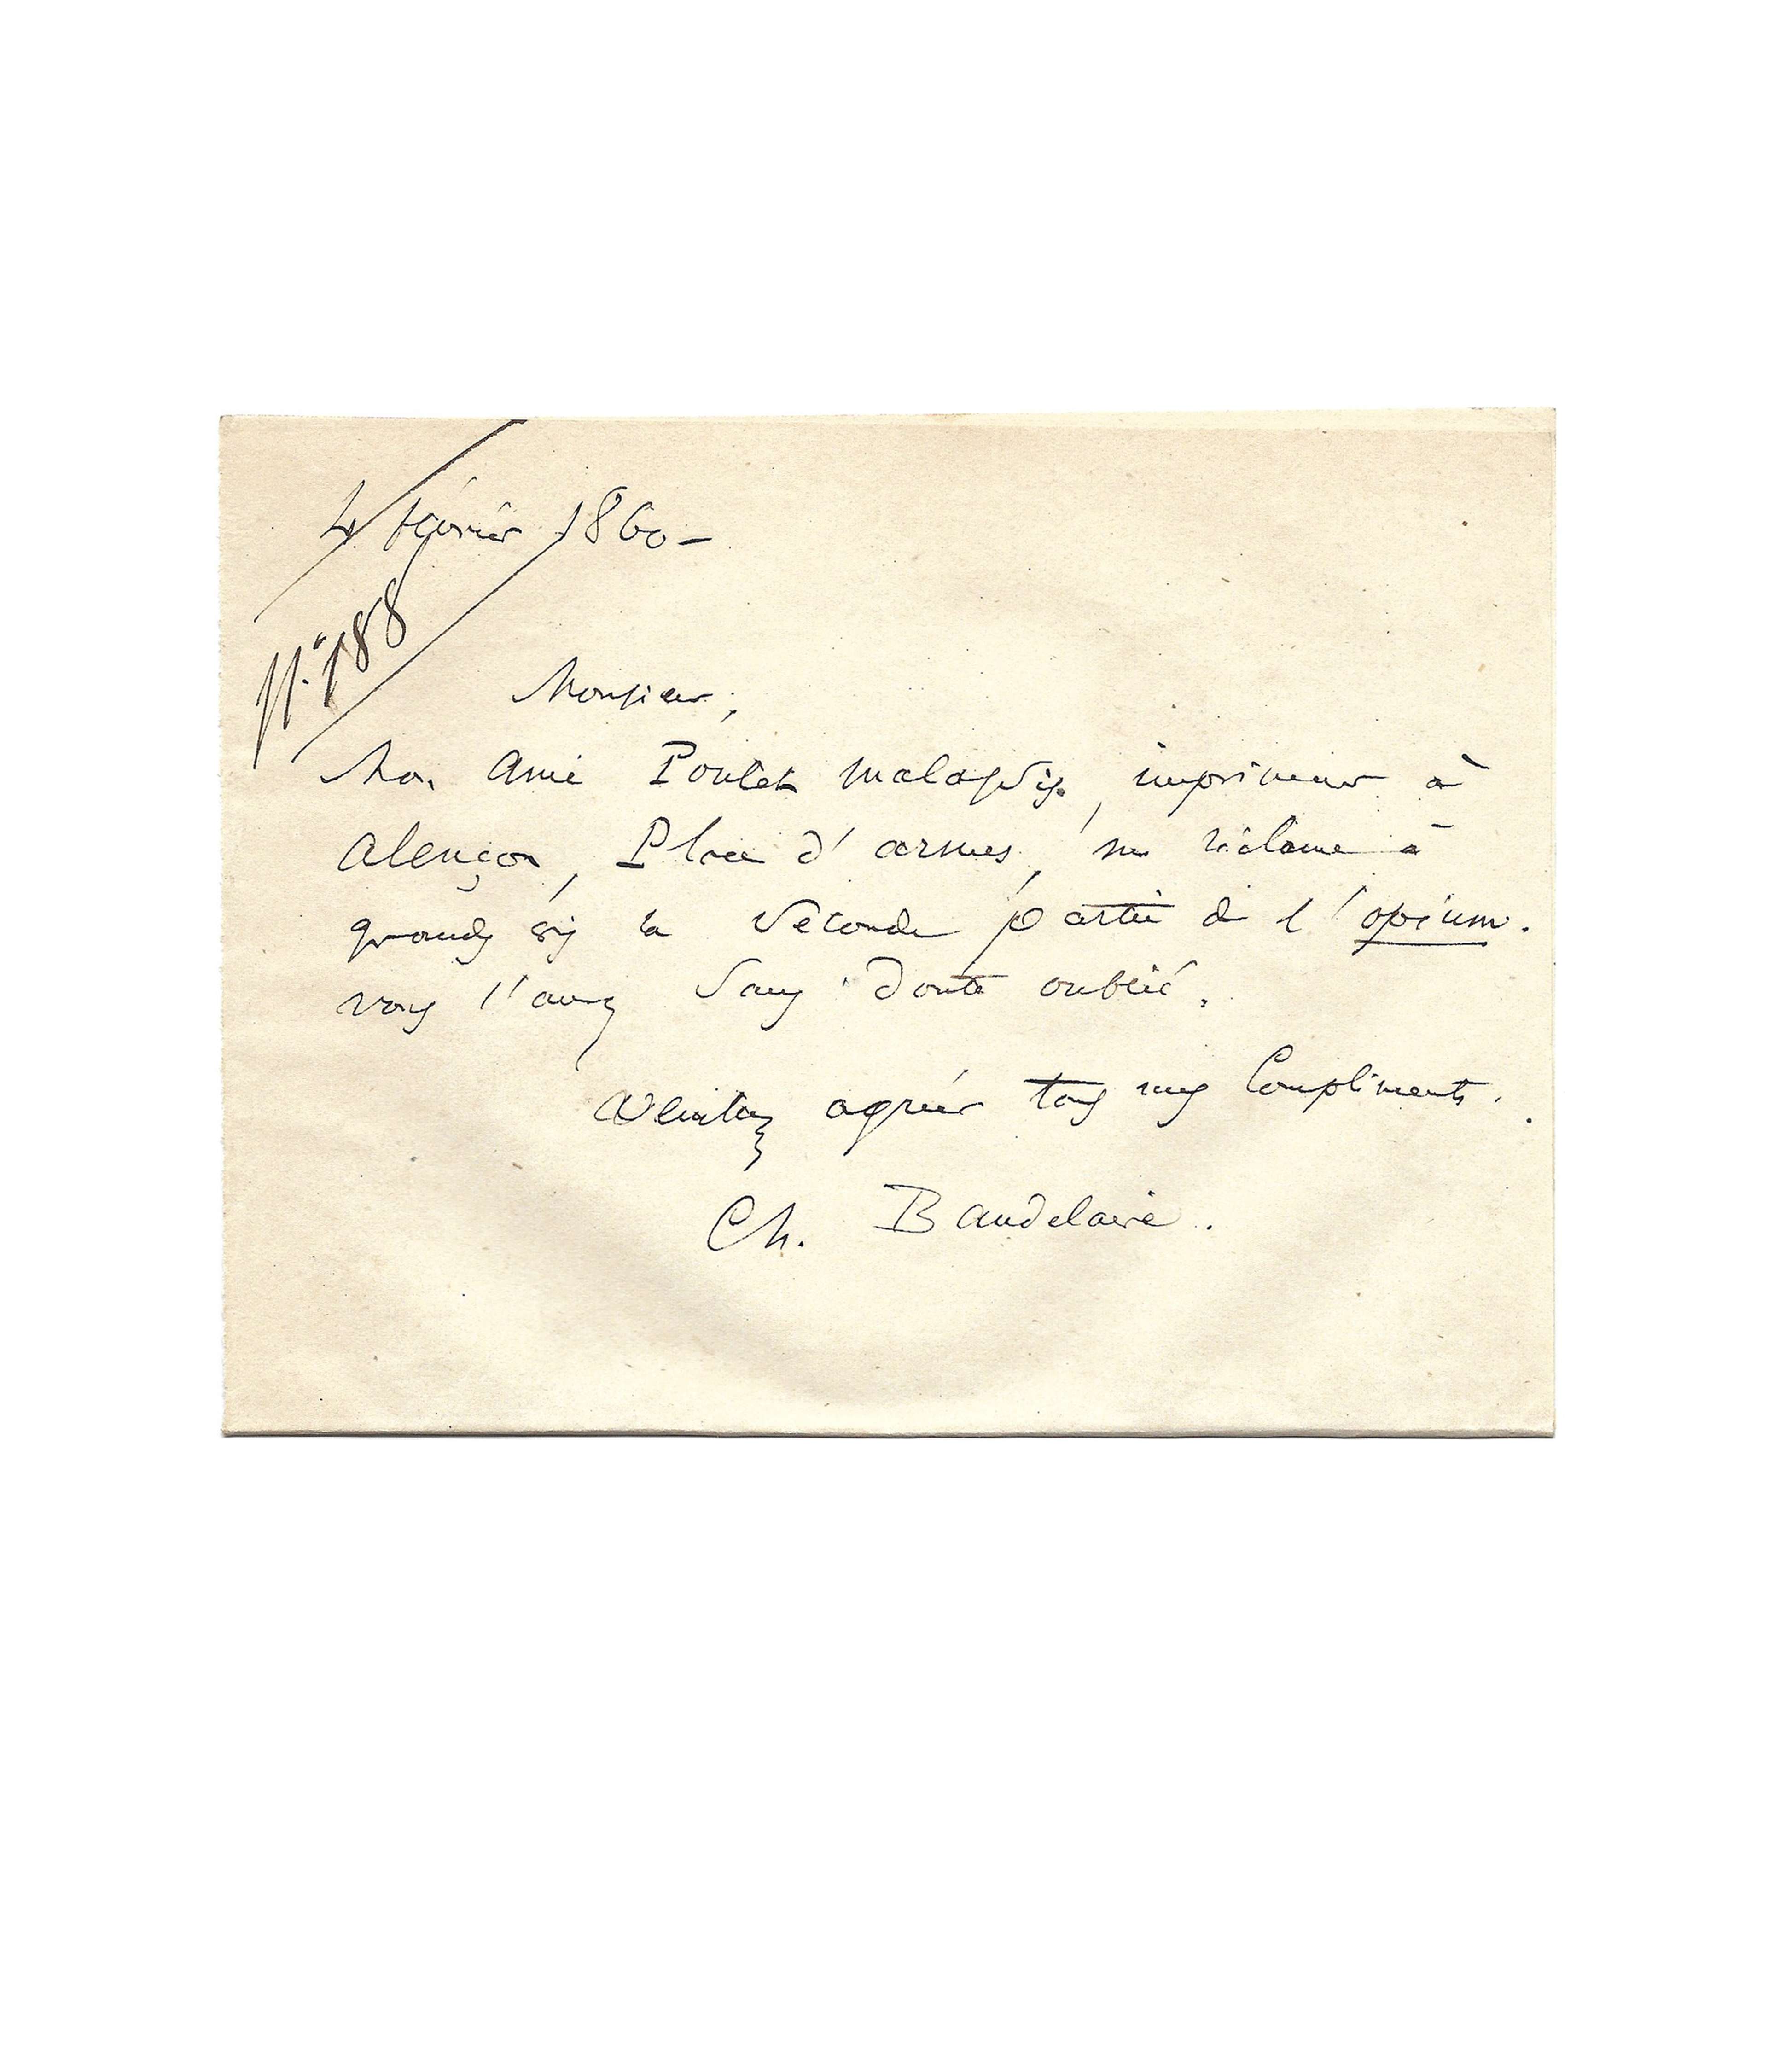 4 février 1860 –
N° 788
Monsieur,
Mon ami Poulet Malassis, imprimeur à
Alençon, Place d'armes, me réclame à
grands cris la Seconde partie de l'opium.
vous l'aurez Sans doute oublié.
Veuillez agréer tous mes Compliments.
Ch. Baudelaire.